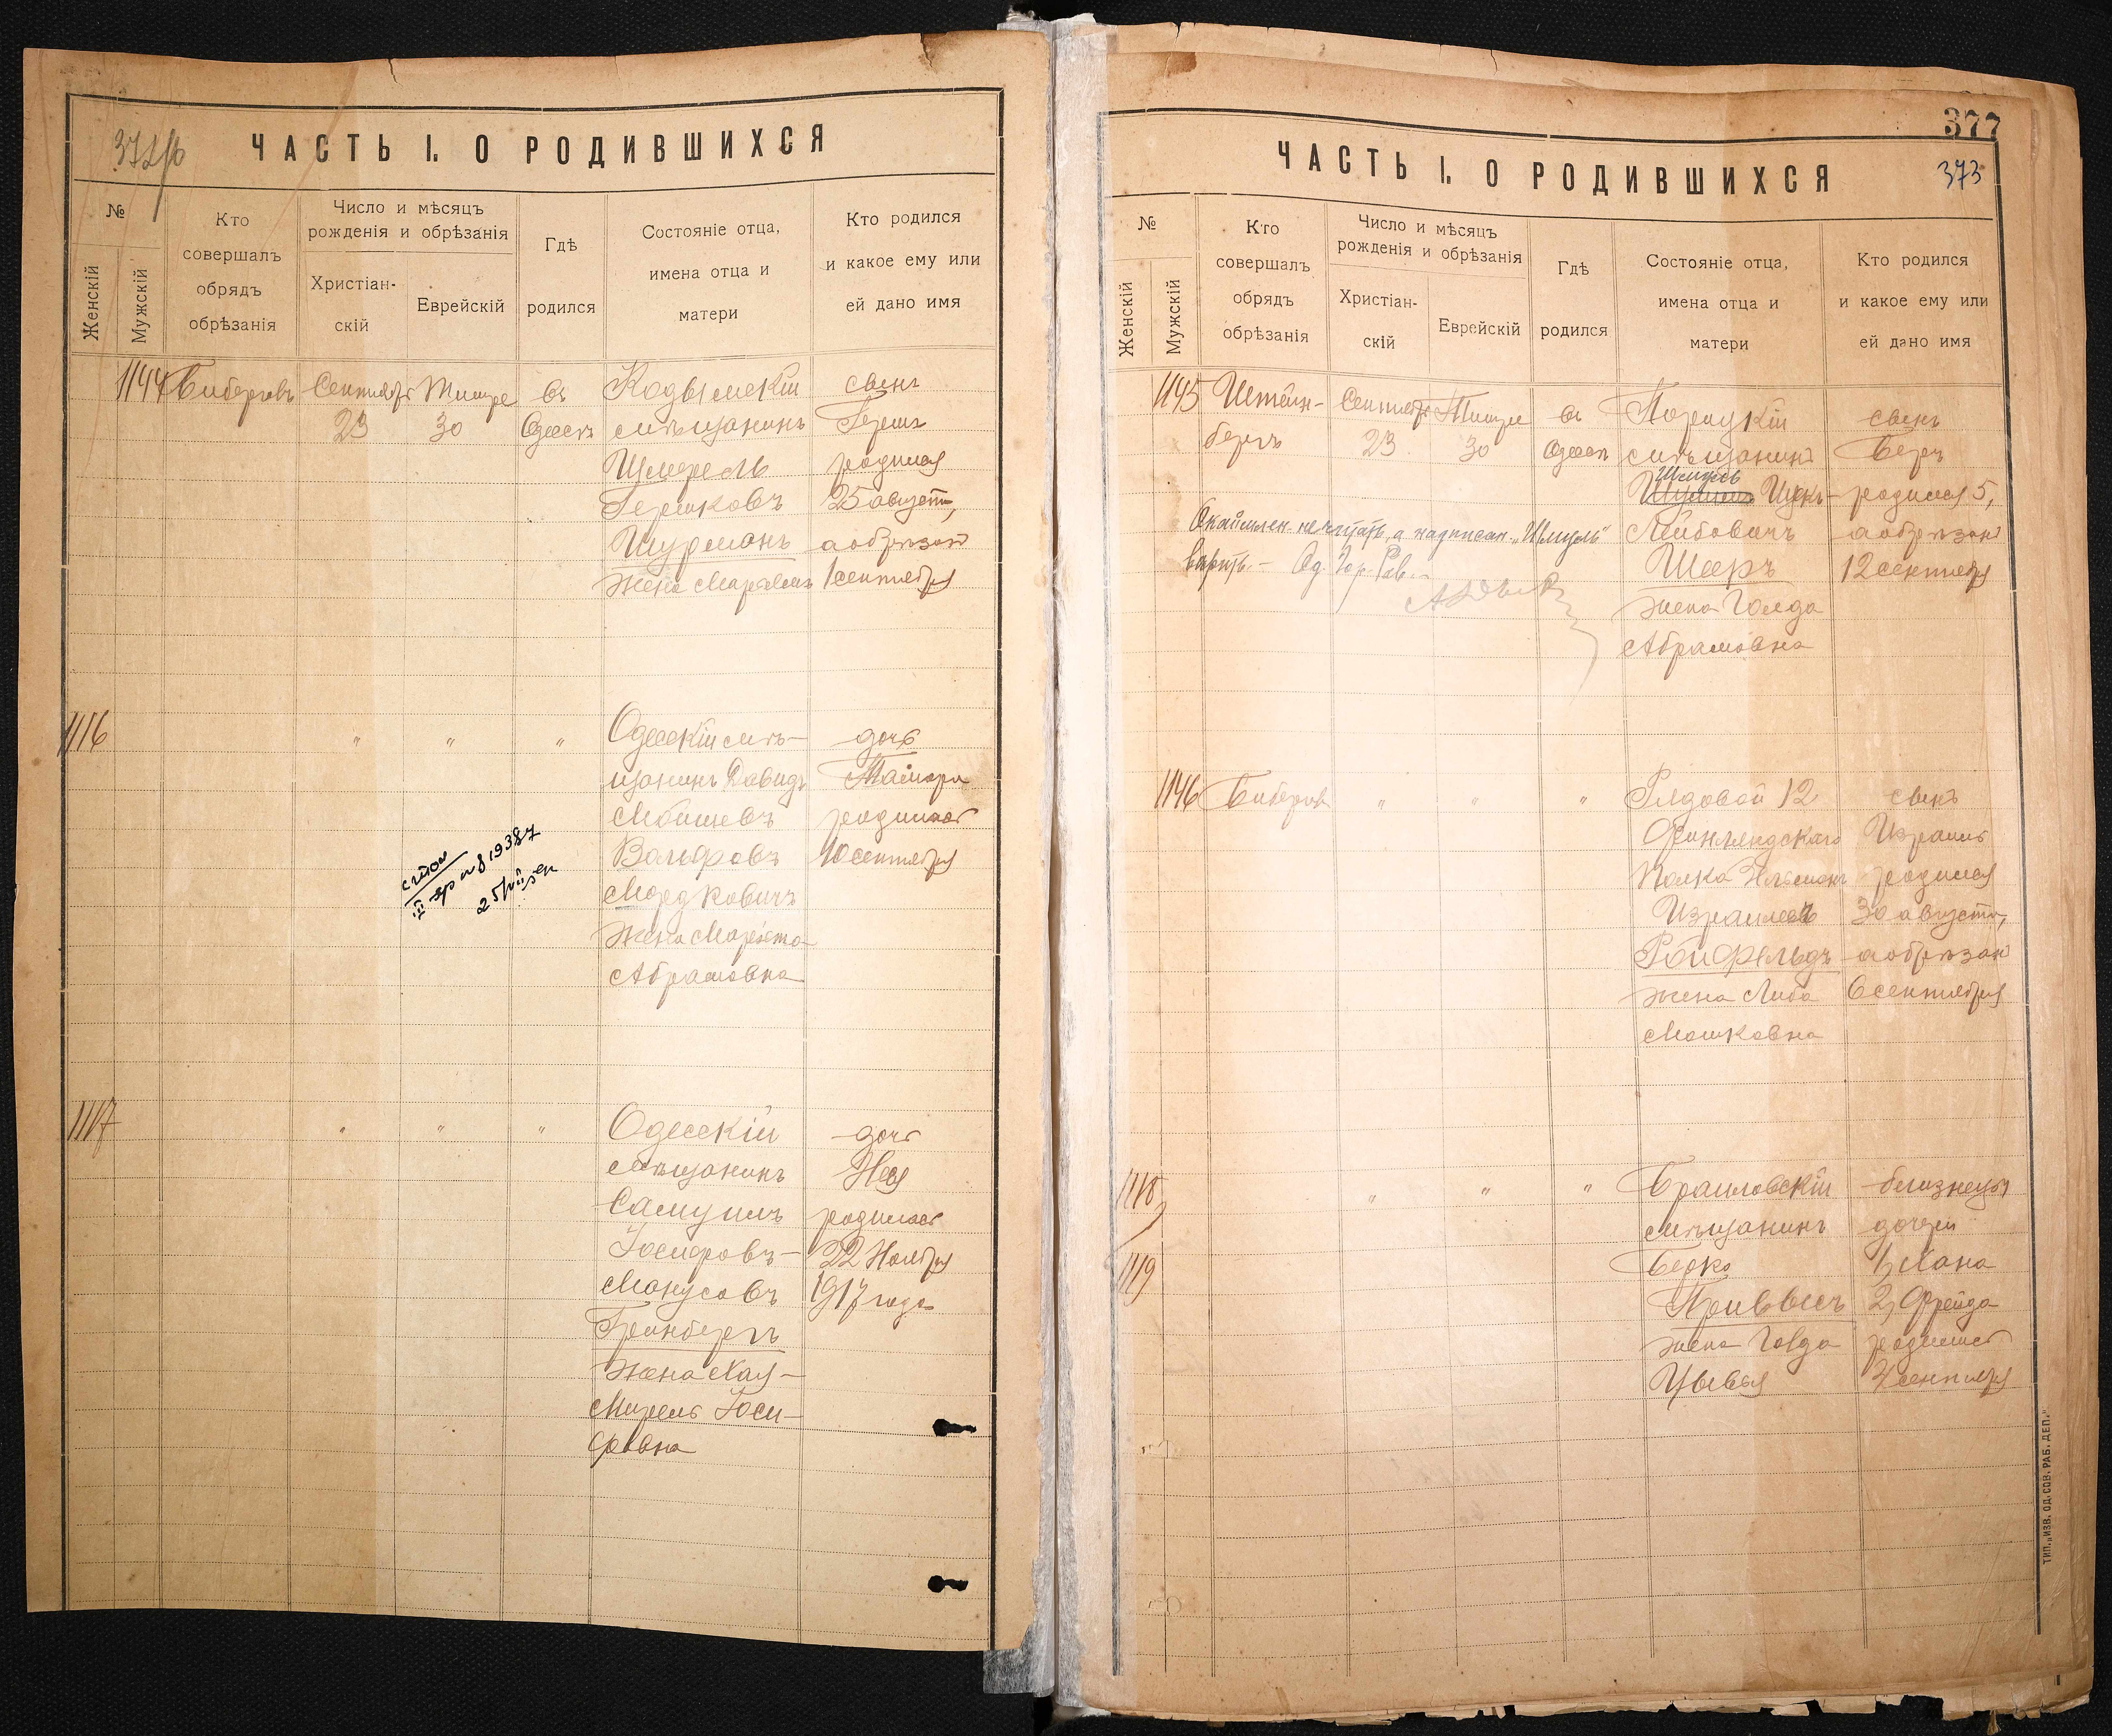 ЧАСТЬ I. О РОДИВШИХСЯ
№
Женскій
Мужскій
Кто
совершалъ
обрядъ
обрѣзанія
Число и мѣсяцъ
рожденія и обрѣзанія
Христіан-
скій
Еврейскій
Гдѣ
родился
Состояніе отца,
имена отца и
матери
Кто родился
и какое ему или
ей дано имя
1144
Биберовъ
Сентября
23
Тишре
30
въ
Одессѣ
Кодымскій
мѣщанинъ
Шмерель
Гершковъ
Шурманъ
жена
сынъ
Гершъ
родился
25 августа,
а обрѣзанъ
1 сентября
1116
"
"
"
Одесскій мѣ-
щанинъ Давидъ
Мойшевъ
Вольфовъ
Мордковичъ
жена
Абрамовна
дочь
Тамара
родилась
10 сентября
1117
"
"
"
Одесскій
мѣщанинъ
Самуилъ
Іосифовъ-
Манусовъ
Гринбергъ
жена Хая-
Мирель Іоси-
фовна
дочь
родилась
22 Ноября
1917 года
377
373
ЧАСТЬ I. О РОДИВШИХСЯ
№
Женскій
Мужскій
Кто
совершалъ
обрядъ
обрѣзанія
Число и мѣсяцъ
рожденія и обрѣзанія
Христіан-
скій
Еврейскій
Гдѣ
родился
Состояніе отца,
имена отца и
матери
Кто родился
и какое ему или
ей дано имя
1145
Штейн-
бергъ
Сентября
23
Тишре
30
въ
Одессѣ
мѣщанинъ
Шмуль
Лейбовичъ
Шеръ
жена Голда
Абрамовна
сынъ
Беръ
родился 5,
а обрѣзанъ
12 сентября
не читать, а надписан. „Шмуль"
вѣрить. - Од. Гор. Рав.
1146
Биберовъ
"
"
"
Рядовой 12
Финляндскаго
Полка
Израилевъ
Ройфельдъ
жена Либа
Мошковна
сынъ
Израиль
родился
30 августа,
а обрѣзанъ
6 сентября
1118
1119
"
"
"
Браиловскій
мѣщанинъ
Берко
Привесъ
жена Голда
Цывья
близнецы
дочери
1, Хана
2, Фрейда
родились
сентября
ТИП. „ИЗВ. ОД. СОВ. РАБ. ДЕП."